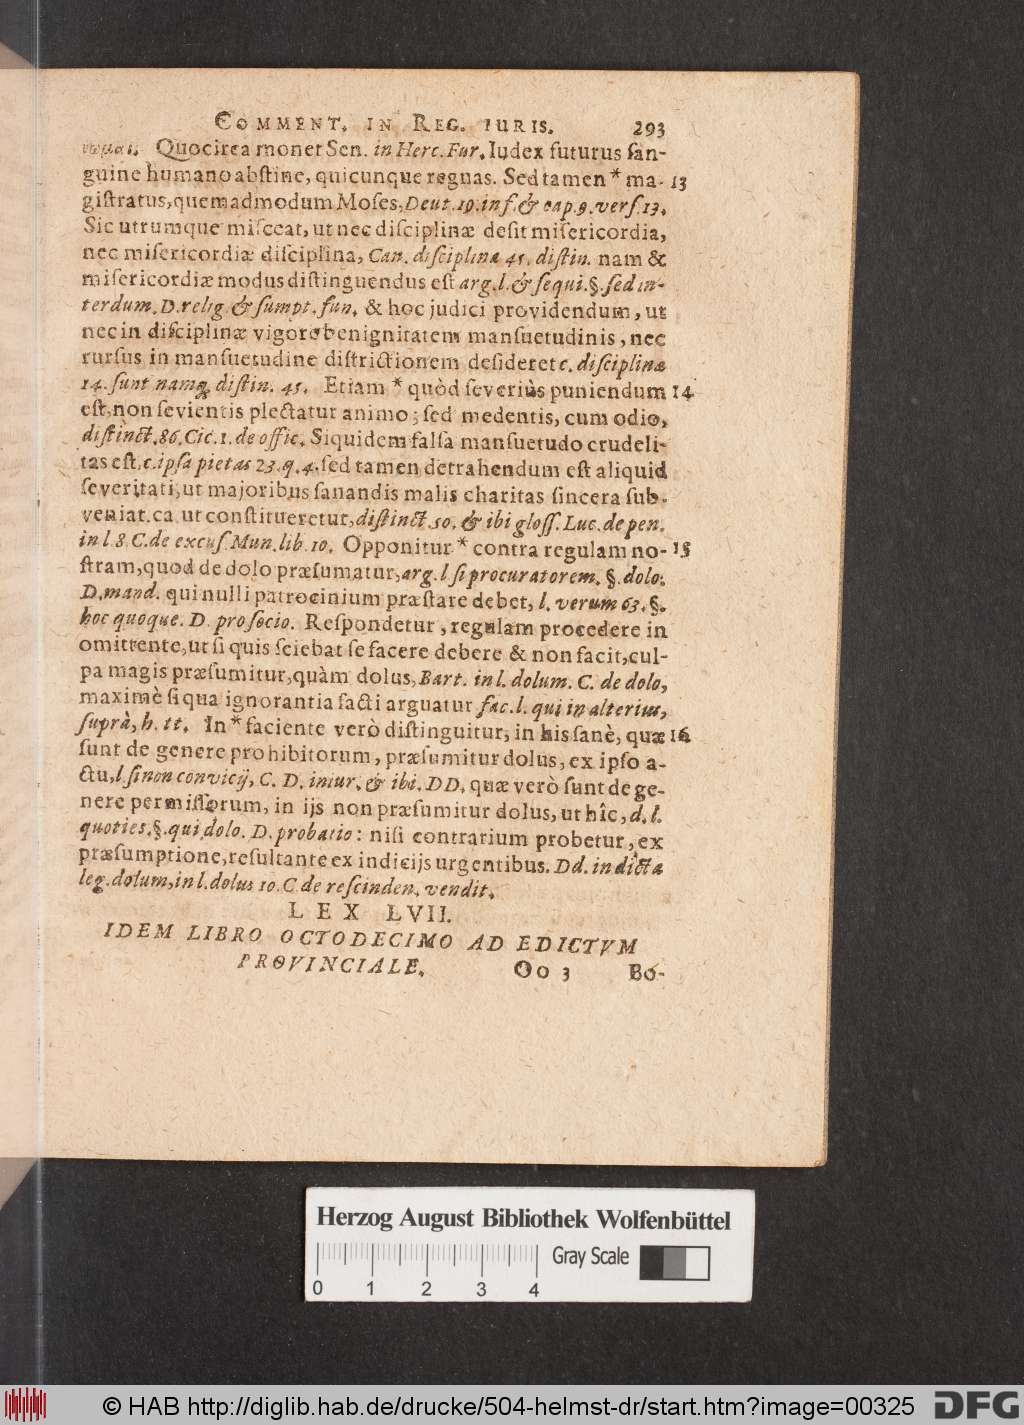 COMMENT. IN REG. IURIS. 293
Quocirca monet Sen. in Herc. Fur. Iudex futurus san-
guine humano abstine, quicunque regnas. Sed tamen * ma- 13
gistratus, quemadmodum Moses, Deut. 19. inf. & cap. 9. vers. 13.
Sic utrumque misceat, ut nec disciplinæ desit misericordia,
nec misericordiæ disciplina, Can. disciplina 45. distin. nam &
misericordiæ modus distinguendus est arg. l. & sequi. §. sed in-
terdum. D. relig. & sumpt. fun. & hoc judici providendum, ut
nec in disciplinæ vigore benignitatem mansuetudinis, nec
rursus in mansuetudine districtionem desideret c. disciplina
14. sunt namq; distin. 45. Etiam * quòd severiùs puniendum 14
est, non sevientis plectatur animo; sed medentis, cum odio,
distinct. 86. Cic. 1. de offic. Siquidem falsa mansuetudo crudeli-
tas est, c. ipsa pietas 23. q. 4. sed tamen detrahendum est aliquid
severitati, ut majoribus sanandis malis charitas sincera sub-
veniat. ca. ut constitueretur, distinct. 50. & ibi gloss. Luc. de pen.
in l. 8. C. de excus. Mun. lib. 10. Opponitur * contra regulam no- 15
stram, quod de dolo præsumatur, arg. l. si procuratorem. §. dolo.
D. mand. qui nulli patrocinium præstare debet, l. verum 63. §.
hoc quoque. D. pro socio. Respondetur, regulam procedere in
omittente, ut si quis sciebat se facere debere & non facit, cul-
pa magis præsumitur, quàm dolus, Bart. in l. dolum. C. de dolo,
maximè si qua ignorantia facti arguatur fac. l. qui in alterius,
suprà, h. tt. In * faciente verò distinguitur, in his sanè, quæ 16
sunt de genere prohibitorum, præsumitur dolus, ex ipso a-
ctu, l. si non convicij, C. D. iniur. & ibi. DD. quæ verò sunt de ge-
nere permissorum, in ijs non præsumitur dolus, ut hîc, d. l.
quoties. §. qui dolo. D. probatio: nisi contrarium probetur, ex
præsumptione, resultante ex indicijs urgentibus. Dd. in dicta
leg. dolum, in l. dolus 10. C. de rescinden. vendit.
LEX LVII.
IDEM LIBRO OCTODECIMO AD EDICTVM
PROVINCIALE. Oo 3 Bo-
Herzog August Bibliothek Wolfenbüttel
Gray Scale
0 1 2 3 4
© HAB http://diglib.hab.de/drucke/504-helmst-dr/start.htm?image=00325
DFG